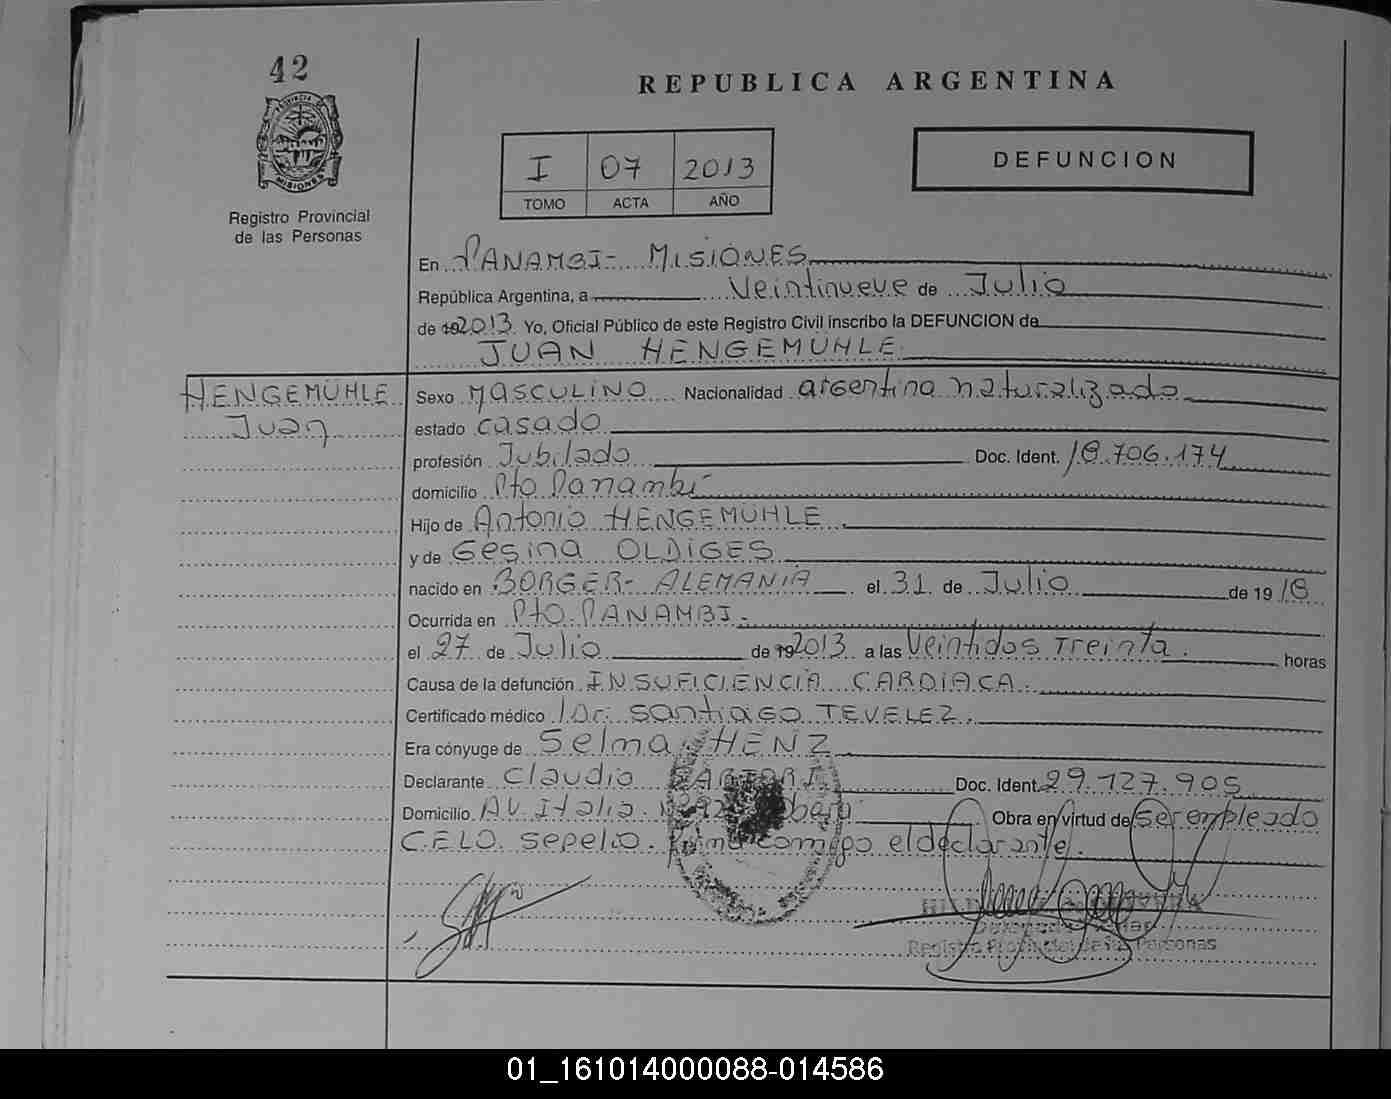 42
REPUBLICA ARGENTINA
PROVINCIA DE
MISIONES
Registro Provincial
de las Personas
I 07 2013
TOMO ACTA AÑO
DEFUNCION
En PANAMBI- MISIONES
República Argentina, a Veintinueve de Julio
de 192013 Yo, Oficial Público de este Registro Civil inscribo la DEFUNCION de
JUAN HENGEMÜHLE
HENGEMÜHLE
Juan
Sexo MASCULINO Nacionalidad argentino naturalizado
estado casado
profesión Jubilado Doc. Ident. 18.706.174
domicilio Pto Panambí
Hijo de Antonio HENGEMÜHLE
y de Gesina OLDIGES
nacido en BORGER- ALEMANIA el 31 de Julio de 19 18
Ocurrida en Pto. PANAMBI.
el 27 de Julio de 192013 a las Veintidos Treinta. horas
Causa de la defunción INSUFICIENCIA CARDIACA.
Certificado médico Dr. Santiago TEVELEZ.
Era cónyuge de Selma HENZ
Declarante Claudio Doc. Ident. 29.127.905
Domicilio AV. Italia Obera Obra en virtud de ser empleado
C.E.L.O. Sepelio. Firma conmigo el declarante.
Registro Provincial de las Personas
01_161014000088-014586